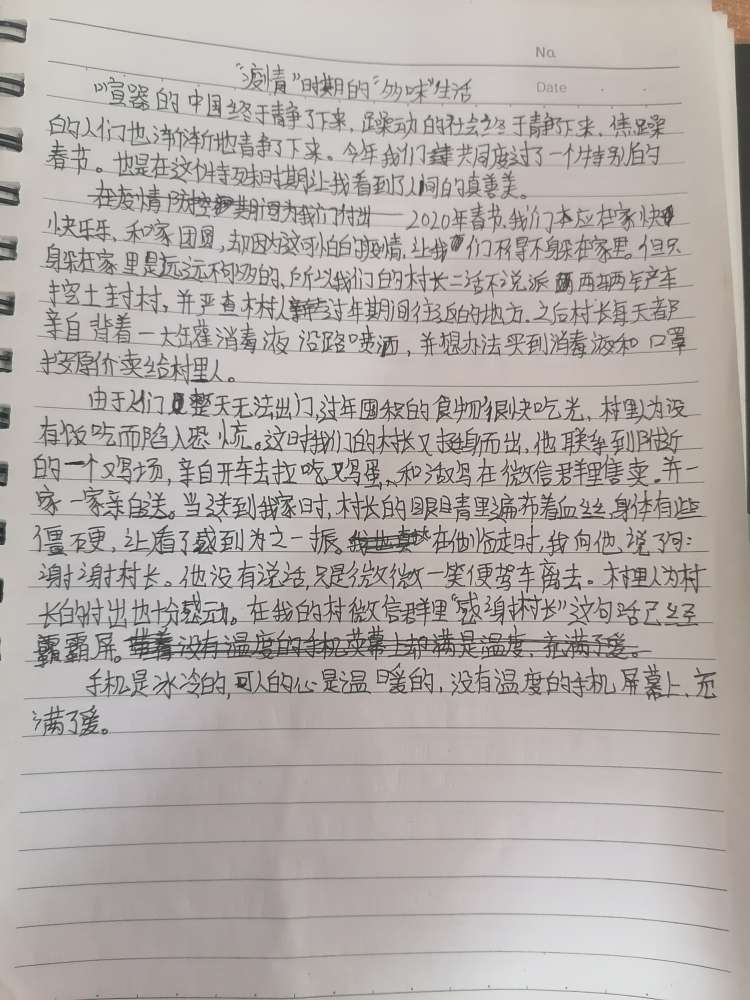 No.
Date
"疫情"时期的"多味"生活
喧嚣的中国终于静了下来,躁动的社会终于静了下来,焦躁
的人们也渐渐地静了下来。今年我们共同度过了一个特别的
春节。也是在这个特殊时期让我看到了人间的真善美。
在疫情防控期间为我们付出——2020年春节,我们本应在家快
快乐乐,和家团圆,却因为这可怕的疫情,让我们不得不躲在家里。但只
躲在家里是远远不够的,所以我们的村长二话不说派两辆铲车
挖土封村,并严查本村人过年期间往返的地方。之后村长每天都
亲自背着一大罐消毒液沿路喷洒,并想办法买到消毒液和口罩
按原价卖给村里人。
由于人们整天无法出门,过年囤积的食物很快吃光,村里人为没
有饭吃而陷入恐慌。这时我们的村长又挺身而出,他联系到附近
的一个鸡场,亲自开车去拉吃鸡蛋、和活鸡在微信群里售卖。并一
家一家亲自送。当送到我家时,村长的眼睛里遍布着血丝,身体有些
僵硬,让看了感到为之一振。在他临走时,我向他说了句:
谢谢村长。他没有说话,只是微微一笑便驾车离去。村里人为村
长的付出也十分感动。在我的村微信群里"感谢村长"这句话已经
霸霸屏。没有温度的手机荧幕上却满是温度,充满了爱。
手机是冰冷的,可人的心是温暖的,没有温度的手机屏幕上,充
满了爱。